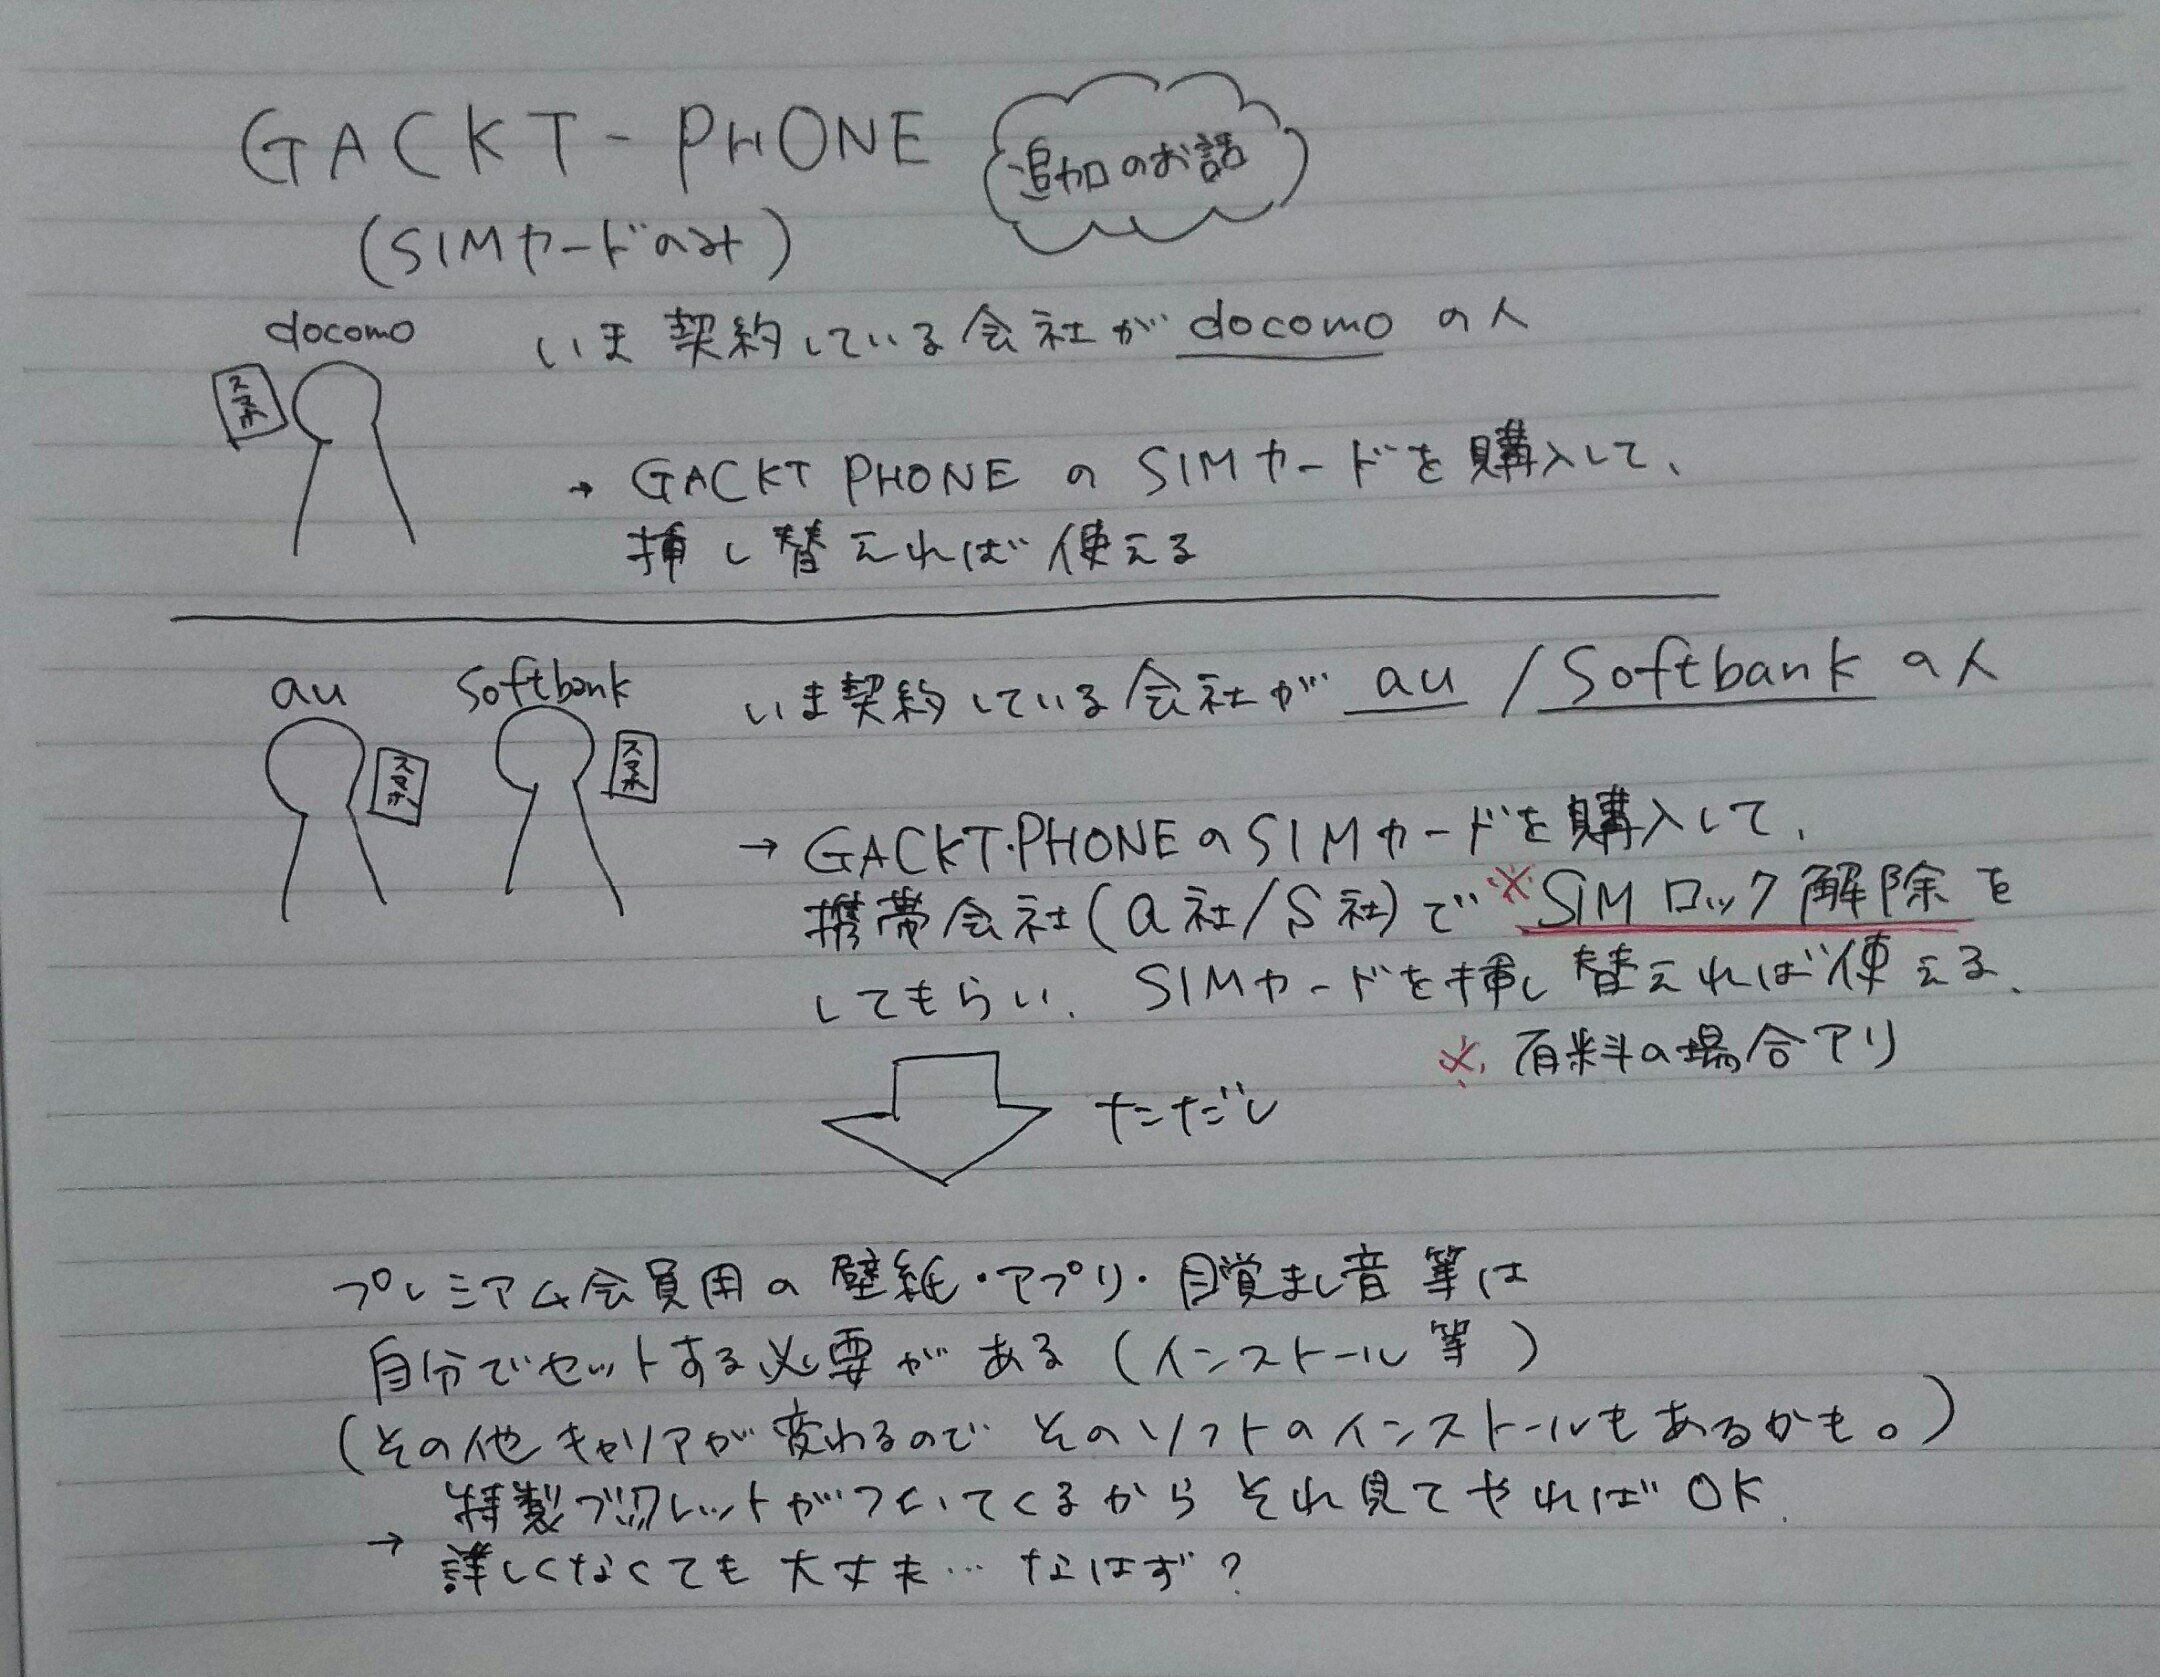 GACKT-PHONE
追加のお話
(SIMカードのみ)
docomo
スマホ
いま契約している会社が docomo の人
→ GACKT PHONE の SIMカードを購入して、
挿し替えれば使える
au
スマホ
Softbank
スマホ
いま契約している会社が au / Softbank の人
→ GACKT・PHONEのSIMカードを購入して、
携帯会社(a社/S社)で ※SIMロック解除を
してもらい、SIMカードを挿し替えれば使える、
※ 有料の場合アリ
ただし
プレミアム会員用の壁紙・アプリ・目覚まし音等は
自分でセットする必要がある(インストール等)
(その他キャリアが変わるので そのソフトのインストールもあるかも。)
→ 特製ブックレットがついてくるから それ見てやればOK.
詳しくなくても大丈夫… なはず?